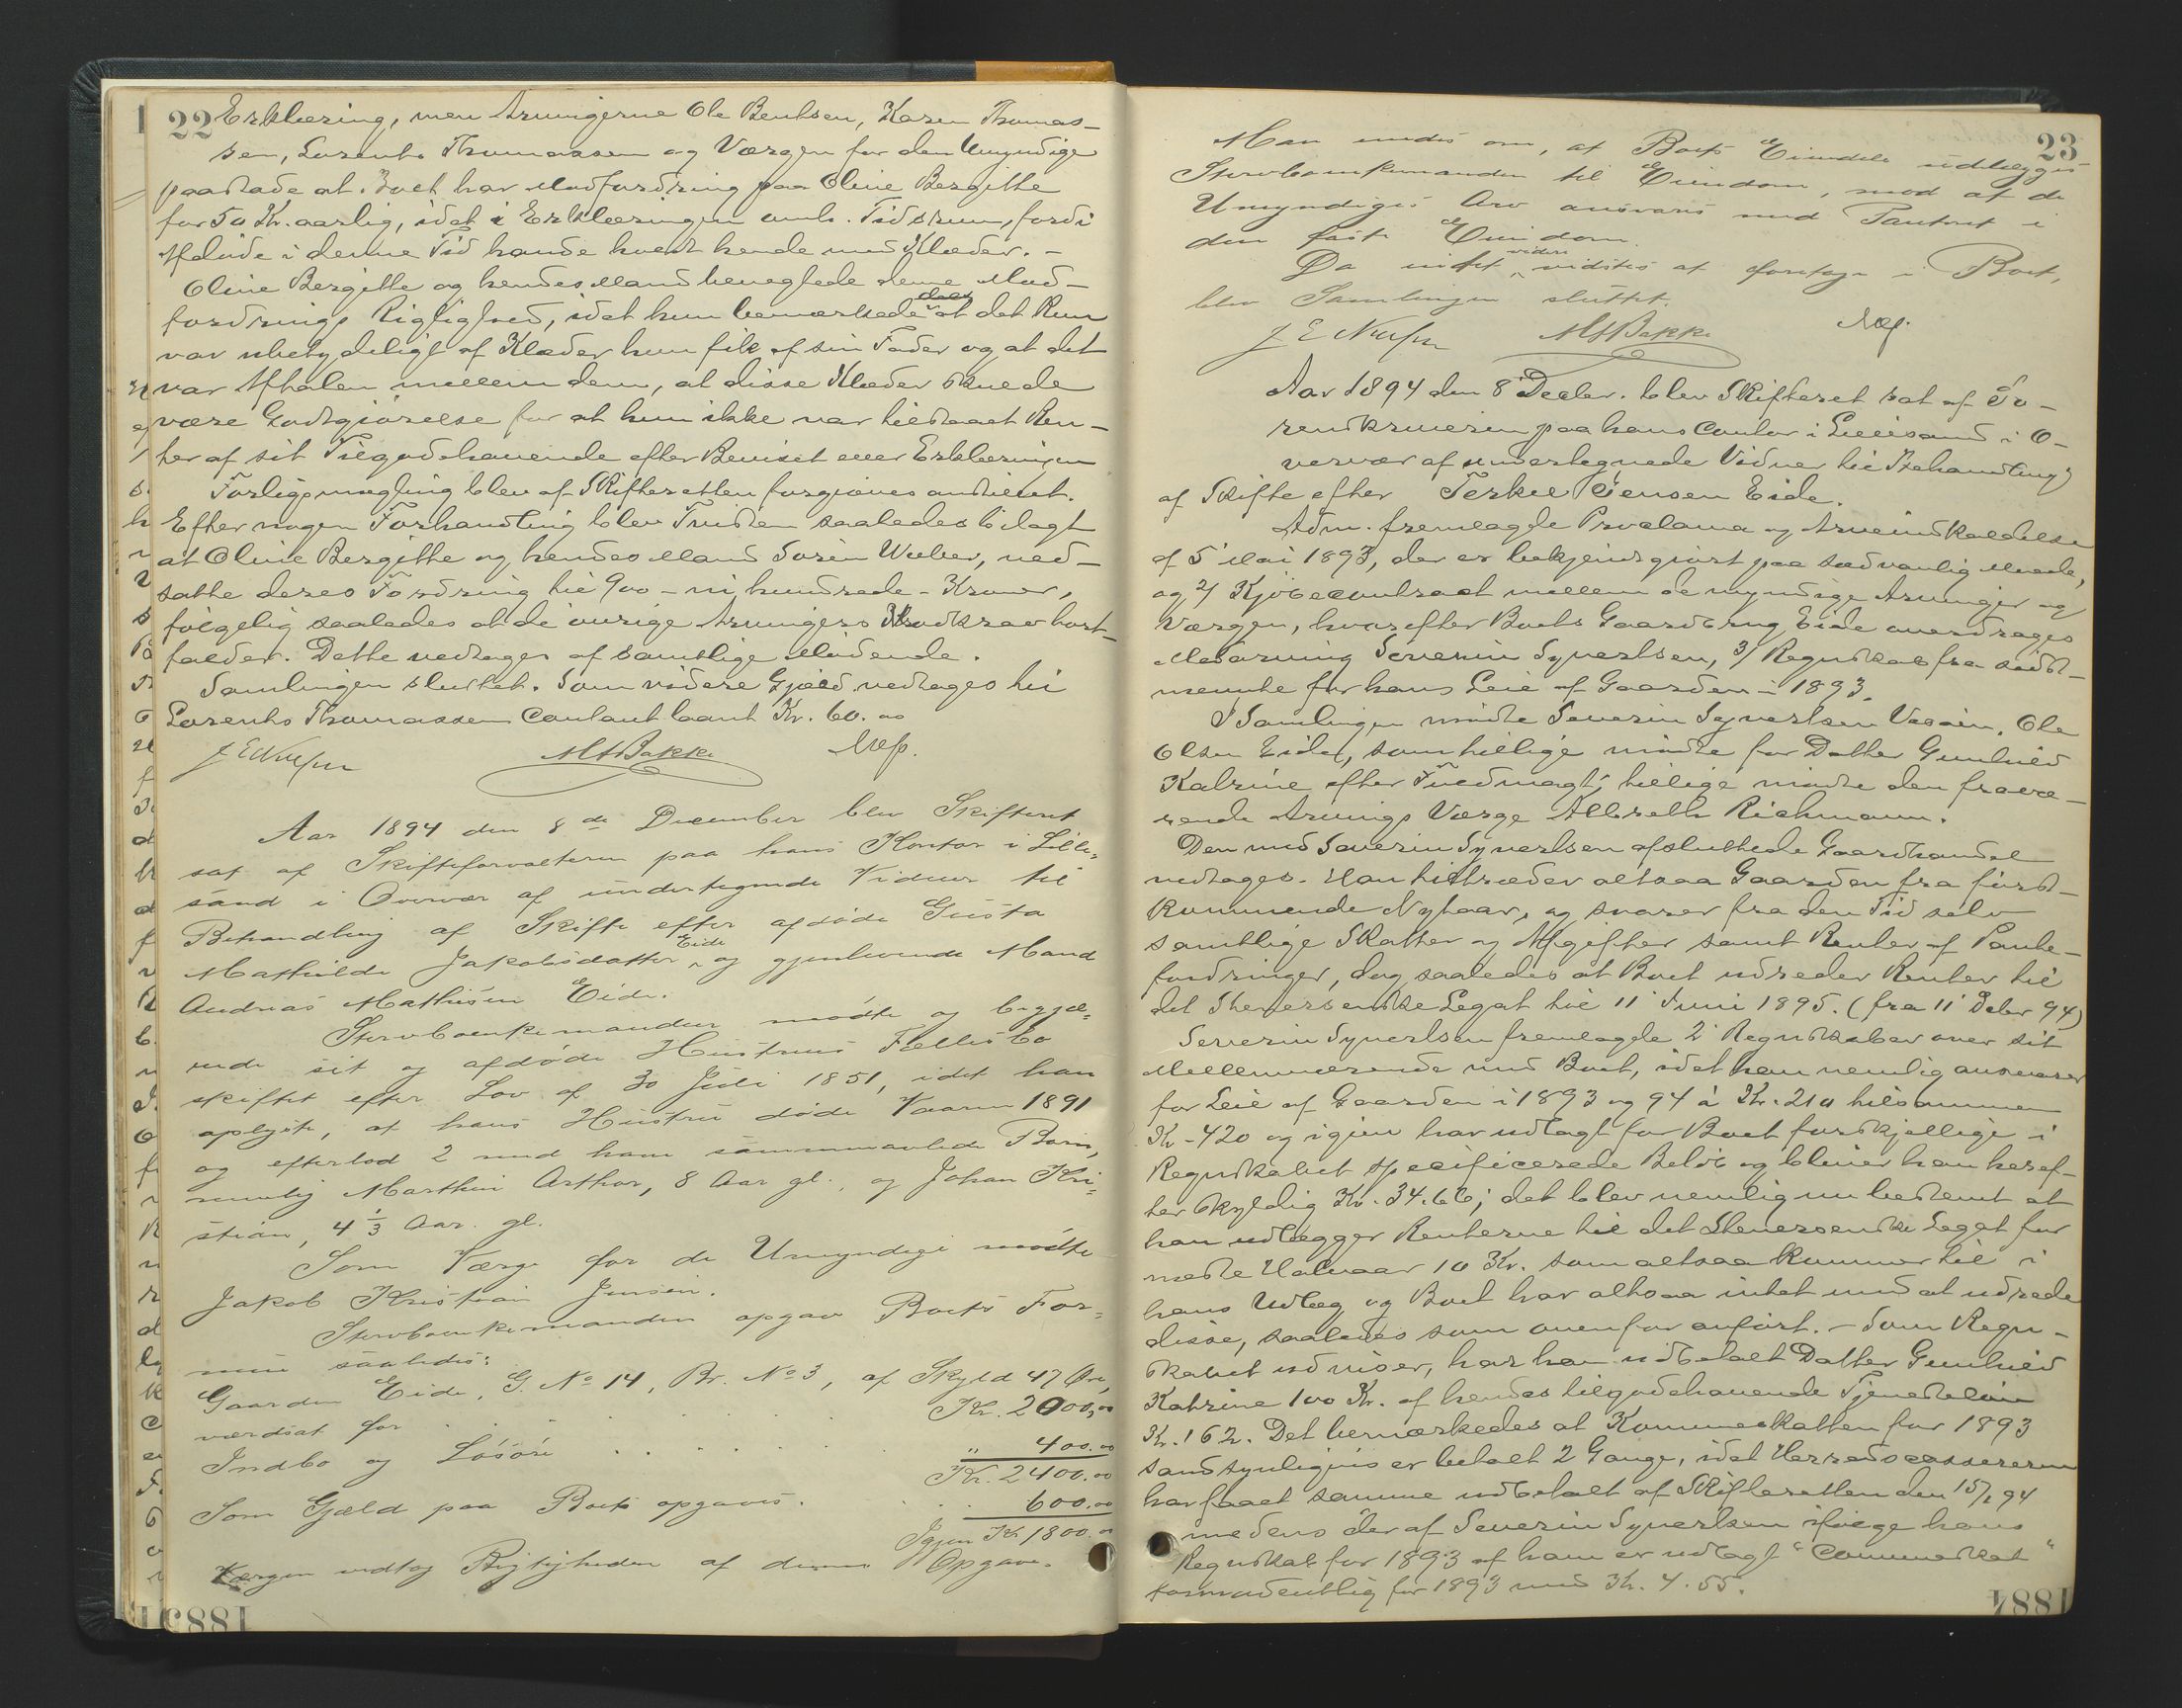 22
Erklæring, men Arvingerne Ole Bentsen, Karen Thomas-
sen, Lorents Thomassen og Værgen for den Umyndige
paastode at Boet har Modfordring paa Oline Bergitte
for 50 Kr. aarlig, idet i Erklæringen omh. Tidsrum, fordi
Afdøde i denne Tid havde holdt hende med Klæder. -
Oline Bergitte og hendes Mand benegtede denne Mod-
fordrings Rigtighed, idet hun bemærkede dog at det kun
var ubetydeligt af Klæder hun fik af sin Fader og at det
var Aftalen mellem dem, at disse Klæder skulde
være Godtgjørelse for at hun ikke var tilstaaet Ren-
ter af sit Tilgodehavende efter Beviset eller Erklæringen
Forligsmægling blev af Skifteretten forgjæves anstillet.
Efter nogen Forhandling blev Tvisten saaledes bilagt
at Oline Bergitte og hendes Mand Sørin Weber, ned-
satte deres Fordring til 900 - ni hundrede - Kroner,
følgelig saaledes at de øvrige Arvingers Modkrav bort-
falder. Dette vedtoges af samtlige Mødende.
Samlingen sluttet. Som videre Gjæld vedtoges til
Lorents Thomassen contant laant Kr. 60.00
MABakke
Aar 1894 den 8de December blev Skifteret
sat af Skifteforvalteren paa hans Kontor i Lille-
sand i Overvær af undertegnede Vidner til
Behandling af Skifte efter afdøde Gusta
Mathilde Jakobsdatter Eide og gjenlevende Mand
Andreas Mathisen Eide.
Stervboenkemanden mødte og begjæ-
rede sit og afdøde Hustrues Fællesbo
skiftet efter Lov af 30 Juli 1851, idet han
oplyste, at hans Hustru døde Vaaren 1891
og efterlod 2 med ham sammenavlede Børn,
nemlig Marthin Arthur, 8 Aar gl., og Johan Kri-
stian, 4 1/3 Aar gl.
Som Værge for de Umyndige mødte
Jakob Kristian Jensen.
Stervboenkemanden opgav Boets For-
mue saaledes:
Gaarden Eide, G. No 14, Br. No 3, af Skyld 47 Øre,
værdsat for . . . . . Kr. 2000,00
Indbo og Løsøre . . . . . " 400.00
Kr. 2400.00
Som Gjæld paa Boet opgaves . . . 600.00
Igjen Kr 1800.00
Værgen vedtog Rigtigheden af denne Opgave.
15881
23
Man enedes om, at Boets Eiendele udlægges
Stervboenkemanden til Eiendom, mod at de
Umyndiges Arv ansvares med Panteret i
den faste Eiendom.
Da intet videre vidstes at foretage i Boet,
blev Samlingen sluttet.
MABakke
Aar 1894 den 8 Decbr. blev Skifteret sat af So-
renskriveren paa hans Contor i Lillesand i O-
vervær af undertegnede Vidner til Behandling
af Skifte efter Terkel Jensen Eide.
Adm. fremlagde Proclama og Arveindkaldelse
af 5 Mai 1893, der er bekjendtgjort paa sædvanlig Maade,
og 2/ Kjøbecontract mellem de myndige Arvinger og
Værgen, hvorefter Boets Gaardbrug Eide overdrages
Medarving Severin Syvertsen, 3/ Regnskab fra sidst-
nævnte for hans Leie af Gaarden i 1893.
I Samlingen mødte Severin Syvertsen Ole
Olsen Eide, som tillige mødte for Datter Gunhild
Katrine efter Fuldmagt; tillige mødte den fravæ-
rende Arvings Værge Albreth Richmann.
Den med Severin Syvertsen afsluttede Gaardhandel
vedtoges. Han tiltræder altsaa Gaarden fra først-
kommende Nytaar, og svarer fra den Tid selv
samtlige Skatter og Afgifter samt Renter af Pante-
fordringer, dog saaledes at Boet udreder Renter til
det Stenersenske Legat til 11 Juni 1895. (fra 11 Decbr 94)
Severin Syvertsen fremlagde 2 Regnskaber over sit
Mellemværende med Boet, idet han nemlig ansvarer
for Leie af Gaarden i 1893 og 94 á Kr. 210 tilsammen
Kr. 420 og igjen har udlagt for Boet forskjellige i
Regnskabet specificerede Beløb og bliver han heref-
ter skyldig Kr. 34.66; det blev nemlig nu bestemt at
han udlægger Renterne til det Stenersenske Legat for
næste Halvaar 10 Kr. som altsaa kommer til i
hans Udlæg og Boet har altsaa intet med at udrede
disse, saaledes som ovenfor anført. - Som Regn-
skabet udviser, har han udbetalt Datter Gunhild
Katrine 100 Kr. af hendes tilgodehavende Tjenesteløn
Kr. 162. Det bemærkedes at Kommuneskatten for 1893
sandsynligvis er betalt 2 Gange, idet Herredscassereren
har faaet samme udbetalt af Skifteretten den 15/2 94
medens der af Severin Syvertsen ifølge hans
Regnskab for 1893 af ham er udlagt "Communeskat"
formodentlig for 1893 med Kr. 4.55.
1884